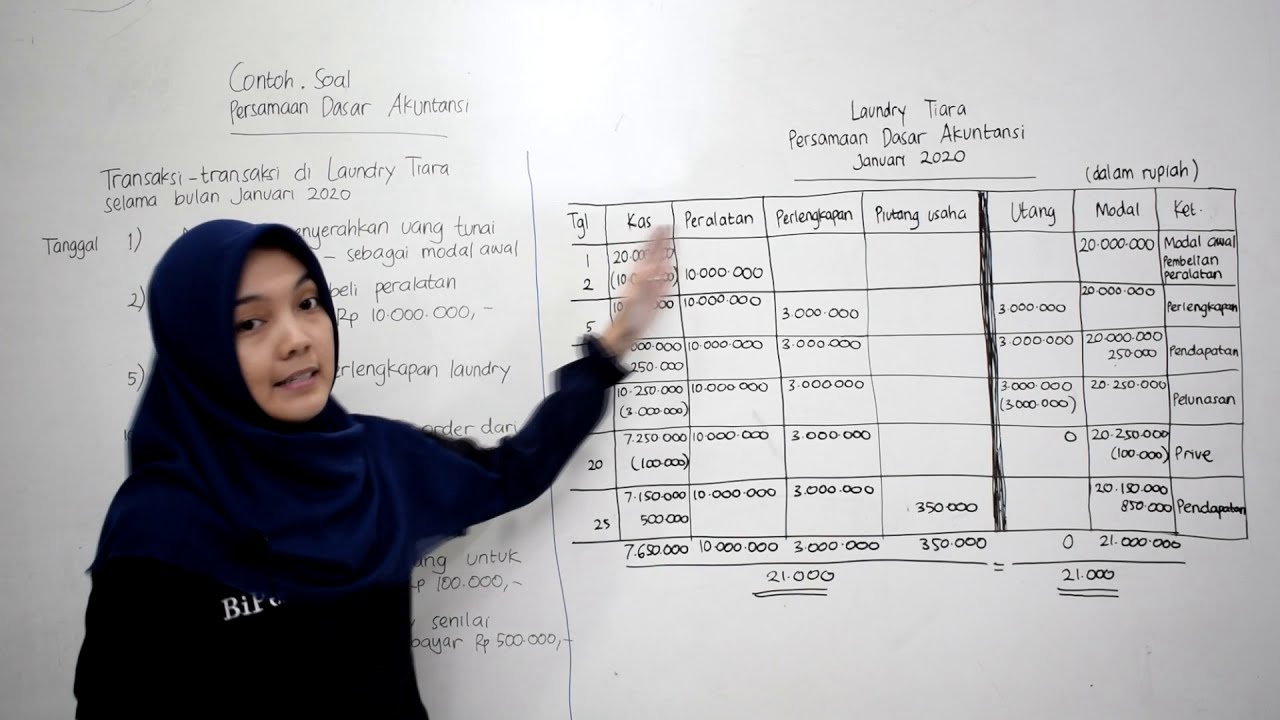 Contoh Soal
Persamaan Dasar Akuntansi
Transaksi-transaksi di Laundry Tiara
selama bulan Januari 2020
Tanggal 1) menyerahkan uang tunai
– sebagai modal awal
2) beli peralatan
Rp 10.000.000,-
5) perlengkapan laundry
order dari
untuk
Rp 100.000,-
senilai
bayar Rp 500.000,-
BiP
Laundry Tiara
Persamaan Dasar Akuntansi
Januari 2020
(dalam rupiah)
Tgl Kas Peralatan Perlengkapan Piutang usaha Utang Modal Ket.
1 20.000.000 Modal awal
2 10.000.000 Pembelian
peralatan
10.000.000 20.000.000
5 3.000.000 3.000.000 Perlengkapan
10.000.000 3.000.000 3.000.000 20.000.000
250.000 250.000 Pendapatan
10.250.000 10.000.000 3.000.000 3.000.000 20.250.000
(3.000.000) (3.000.000) Pelunasan
7.250.000 10.000.000 3.000.000 0 20.250.000
20 (100.000) (100.000) Prive
7.150.000 10.000.000 3.000.000 20.150.000
25 500.000 350.000 850.000 Pendapatan
7.650.000 10.000.000 3.000.000 350.000 0 21.000.000
21.000 = 21.000